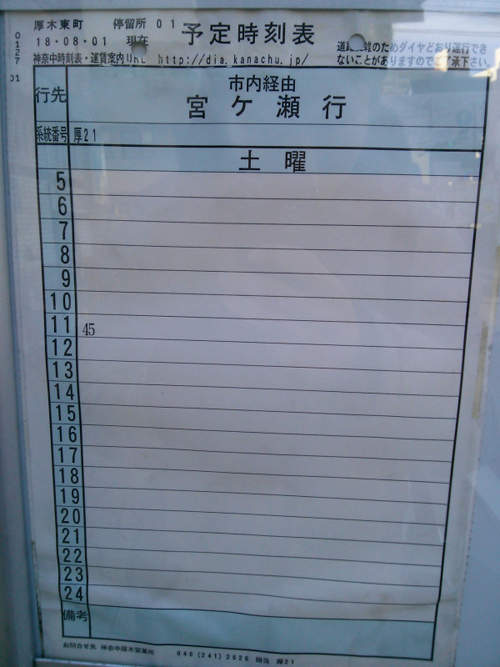 厚木東町 停留所 01 予定時刻表
18-08-01 現在 道路混雑のためダイヤどおり運行でき
神奈中時刻表・運賃案内URL http://dia.kanachu.jp/ ないことがありますのでご了承下さい。
0127
01
行先 市内経由
宮ケ瀬行
系統番号 厚21
土曜
5
6
7
8
9
10
11 45
12
13
14
15
16
17
18
19
20
21
22
23
24
備考
お問合せ先 神奈中厚木営業所 046(241)2626 担当 厚21